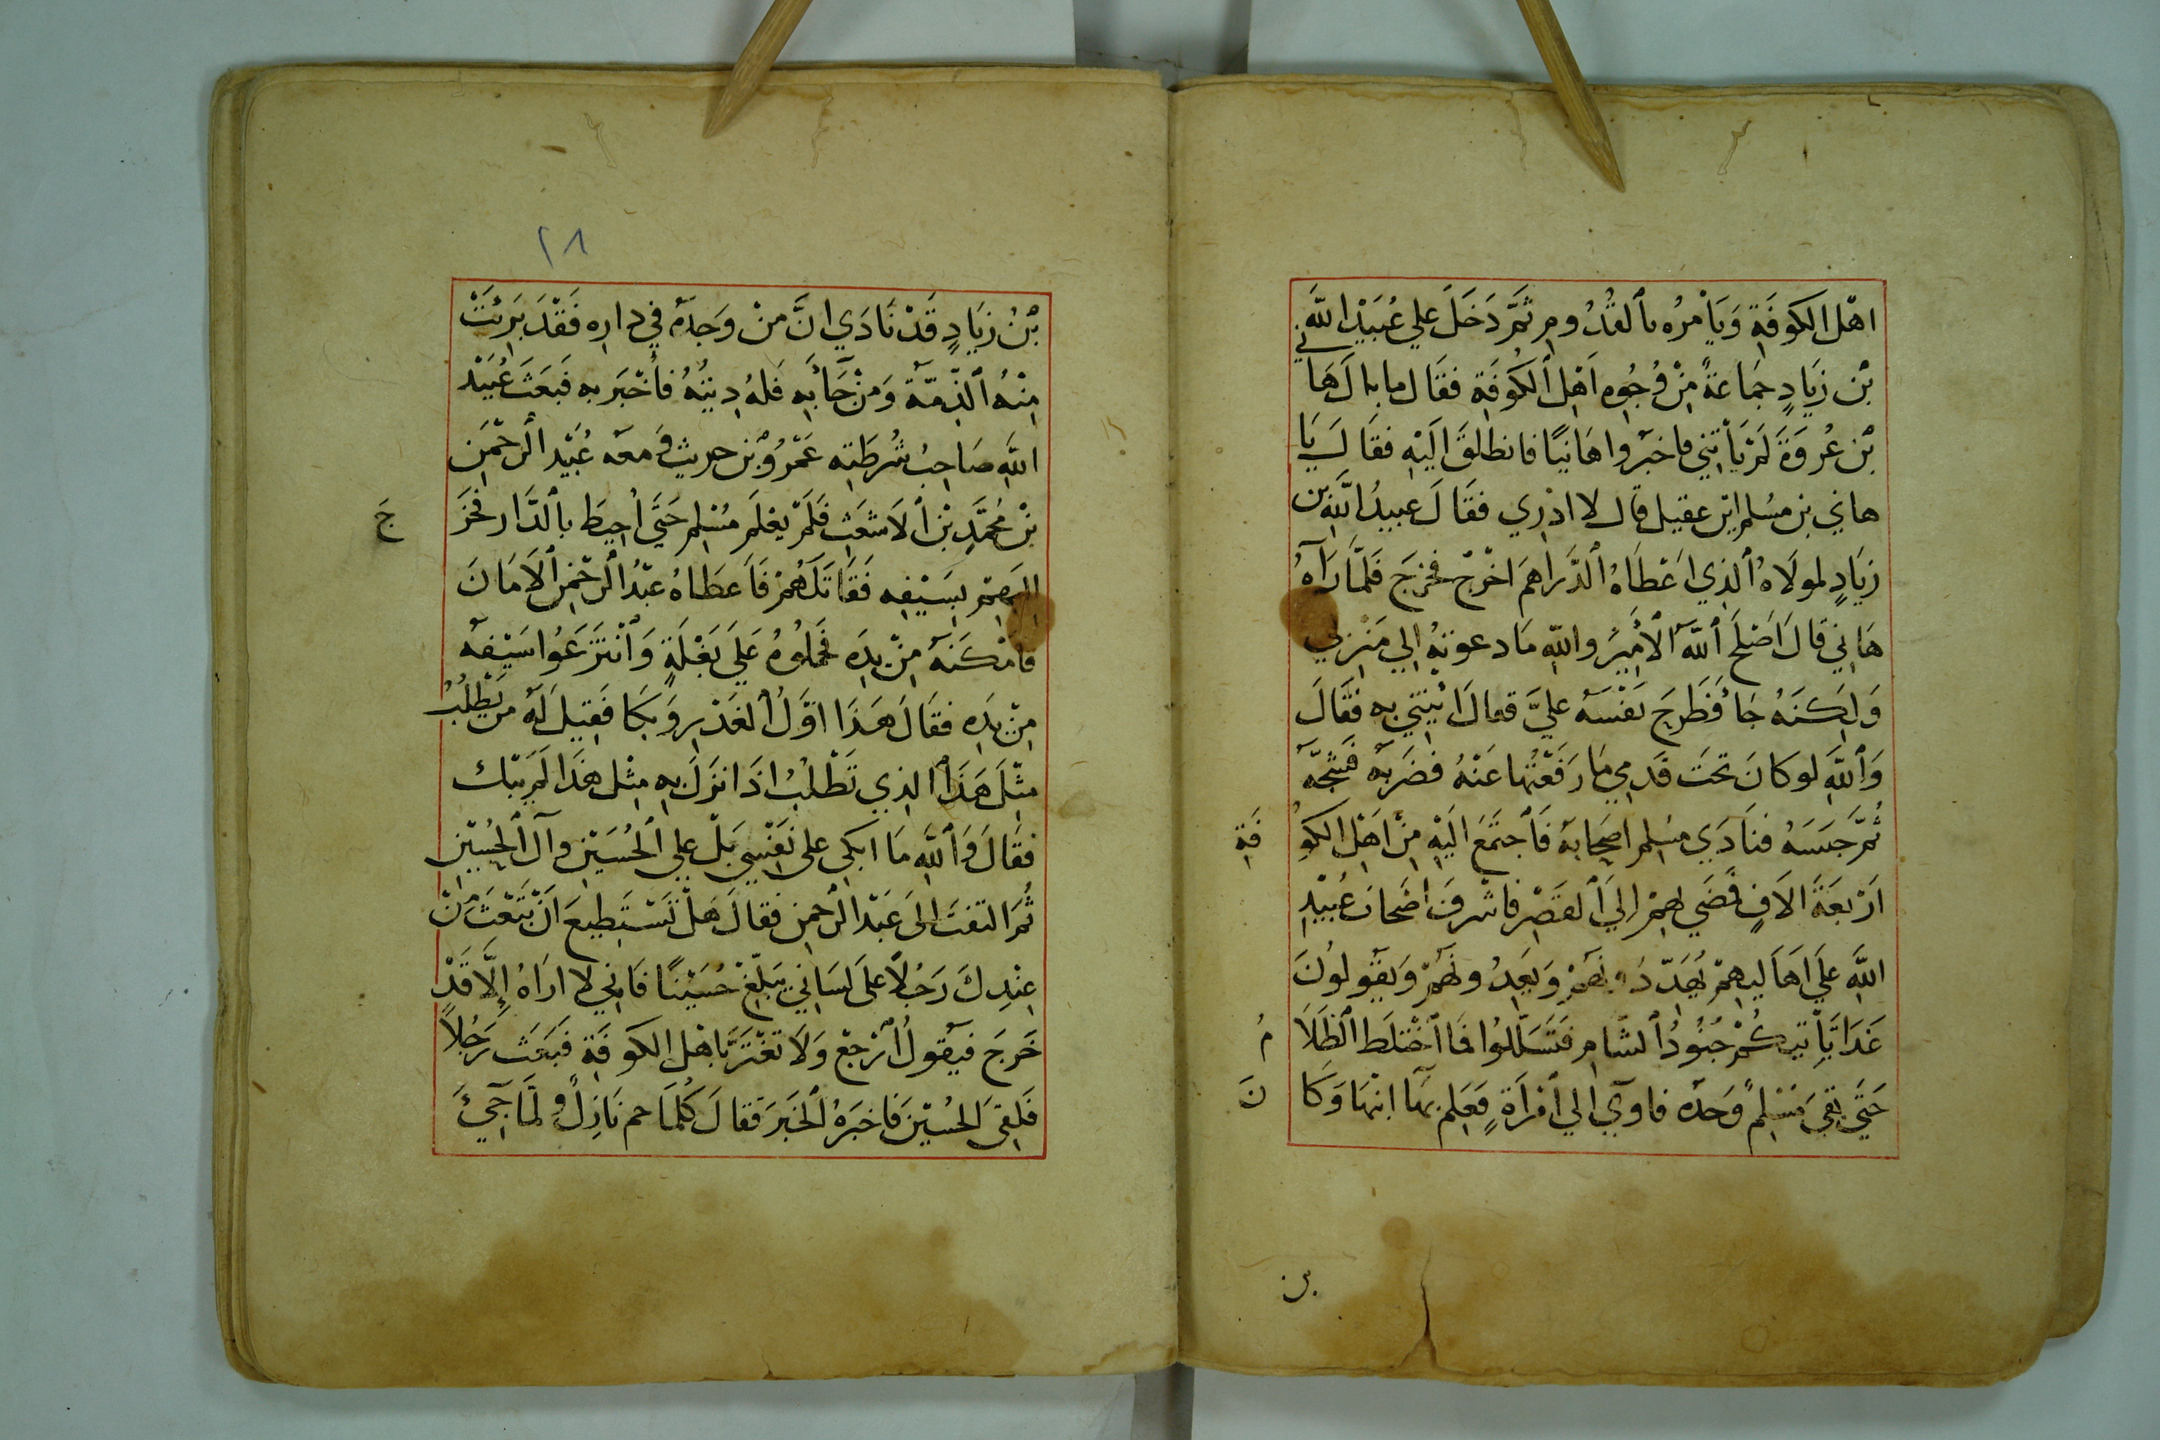 اهْل الكوفَةِ وَيَأمرُه بٱلقُدُومِ ثمَّ دَخَلَ علي عُبَيْد اللَّهِ
بْن زيَادٍ جمَاعةً مِنْ وُجُوهِ اَهْلِ ٱلكُوفَةِ فقَال ما بال هَاني
بْن عُروَةَ لَمْ يَأتِني فاخبَروا هَانيًا فانطلَقَ اليْهِ فقَالَ يَا
هاني بن مسُلم ابْن عقيل قال لا ادْري فقَالَ عبيدُ اللَّهِ بن
زيَادٍ لمولَاهُ ٱلذِي اعْطَاهُ ٱلدَّراهمَ اخْرُجْ فخرَجَ فلمَّا رَآهُ
هَانِي قَالَ اَصْلَحَ ٱللَّهُ الأمِيْرُ واللهِ مَا دعوتهُ إلي مَنْزِلي
وَلكِنّهُ جَاءَ فَطَرحَ نفْسَهُ عليَّ فقالَ ائْتِنِي به فقَالَ
وَٱللَّهِ لو كانَ تحَتَ قَدمِي مَا رَفَعْتُها عَنْهُ فضَربَهُ فَشجَّهُ
ثُمَّ حبَسَهُ فنَادَي مسُلِم اصحَابهُ فَٱجتَمَعَ اليْهِ مِنْ اهْل الكوفَةِ
اَرْبعَةَ الافٍ فمَضَي بهِمْ إِليَ ٱلقصْرِ فاشْرفَ اصْحَابُ عُبيْدِ
اللَّهِ علَي اهَاليهِمْ يُهَدّدُونهَمْ وَيعِدُونَهُمْ وَيقُولونَ
غَدًا يَأتيكُمْ جُنُودُ ٱلشَّامِ فَتسَلَّلُوا فمَا ٱخْتلَط ٱلظَلَامُ
حَتيَ بقيَ مسْلِمٌ وَحدَهُ فاويَ الي ٱمْرأةٍ فعَلِم بهَا ابْنهَا وَكانَ
بن
٢٨
بْنُ زيَادٍ قَدْ نَادَي انَّ منْ وجَدهُ في دارِه فَقدْ بَرِئتْ
مِنْهُ ٱلذِّمَّة وَمَنْ جَاءَ بهِ فَلهُ دِيتُهُ فأخْبَر بهِ فبَعَثَ عُبَيْد
اللَّهِ صَاحِبُ شُرطَتِهِ عَمْروُ بْن حريث وَمعَه عُبَيْد الرّحْمَنِ
بْن مُحمَّدِ بْن ٱلأشعَثِ فلَمْ يعْلَم مسُلِم حَتيَّ اُحِيطَ بٱلدَّارِ فخَرَجَ
إليهِمْ بِسَيْفِهِ فَقَاتَلَهُمْ فَاعطَاهُ عبْدُ الرّحْمَنِ ٱلأَمَانَ
فأمْكَنَهُ مِنْ يدِه فحَملُوهُ علَي بَغْلَةٍ وَٱنْتزَعُوا سَيْفهُ
مِنْ يَدِهِ فقَالَ هَذَا اوَّلُ ٱلغَدْرِ وَبَكَا فَقِيلَ لَهُ منْ يَطْلبُ
مثْلَ هَذَا ٱلذِي تَطْلُبُ اذَا نزَلَ بهِ مِثْل هَذَا لم يَبْك
فقَالَ وَٱللَّهِ مَا ابْكِي على نَفْسِي بَلْ علي ٱلحُسَيْنِ وآل ٱلحُسَيْنِ
ثُمَّ التفتَ إلىَ عَبْد الرّحمنِ فقالَ هَلْ تَسْتَطِيعَ اَنْ تَبْعَثَ مِنْ
عِنْدِكَ رَجُلاً علىَ لسَانِي يبَلِّغْ حُسَيْنًا فَانِّي لا ارَاهُ إلَّا قَدْ
خَرجَ فيقُولُ ٱرْجعْ وَلَا تغْتَرَّ بَاهْل الكوفَةِ فَبعَثَ رَجُلاً
فَلقِيَ الحُسيْنَ فاخبَرهُ ٱلخبَرَ فقَالَ كُلَّمَا حم نَازِلٌ وَلمَّا جِيئَ